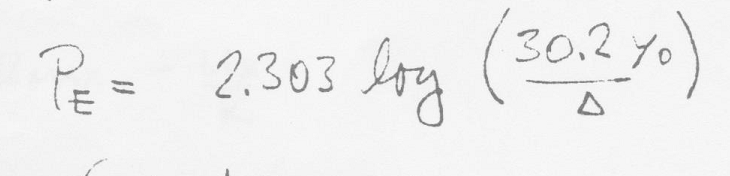 P_E = 2.303 log (30.2 y_0 / Δ)